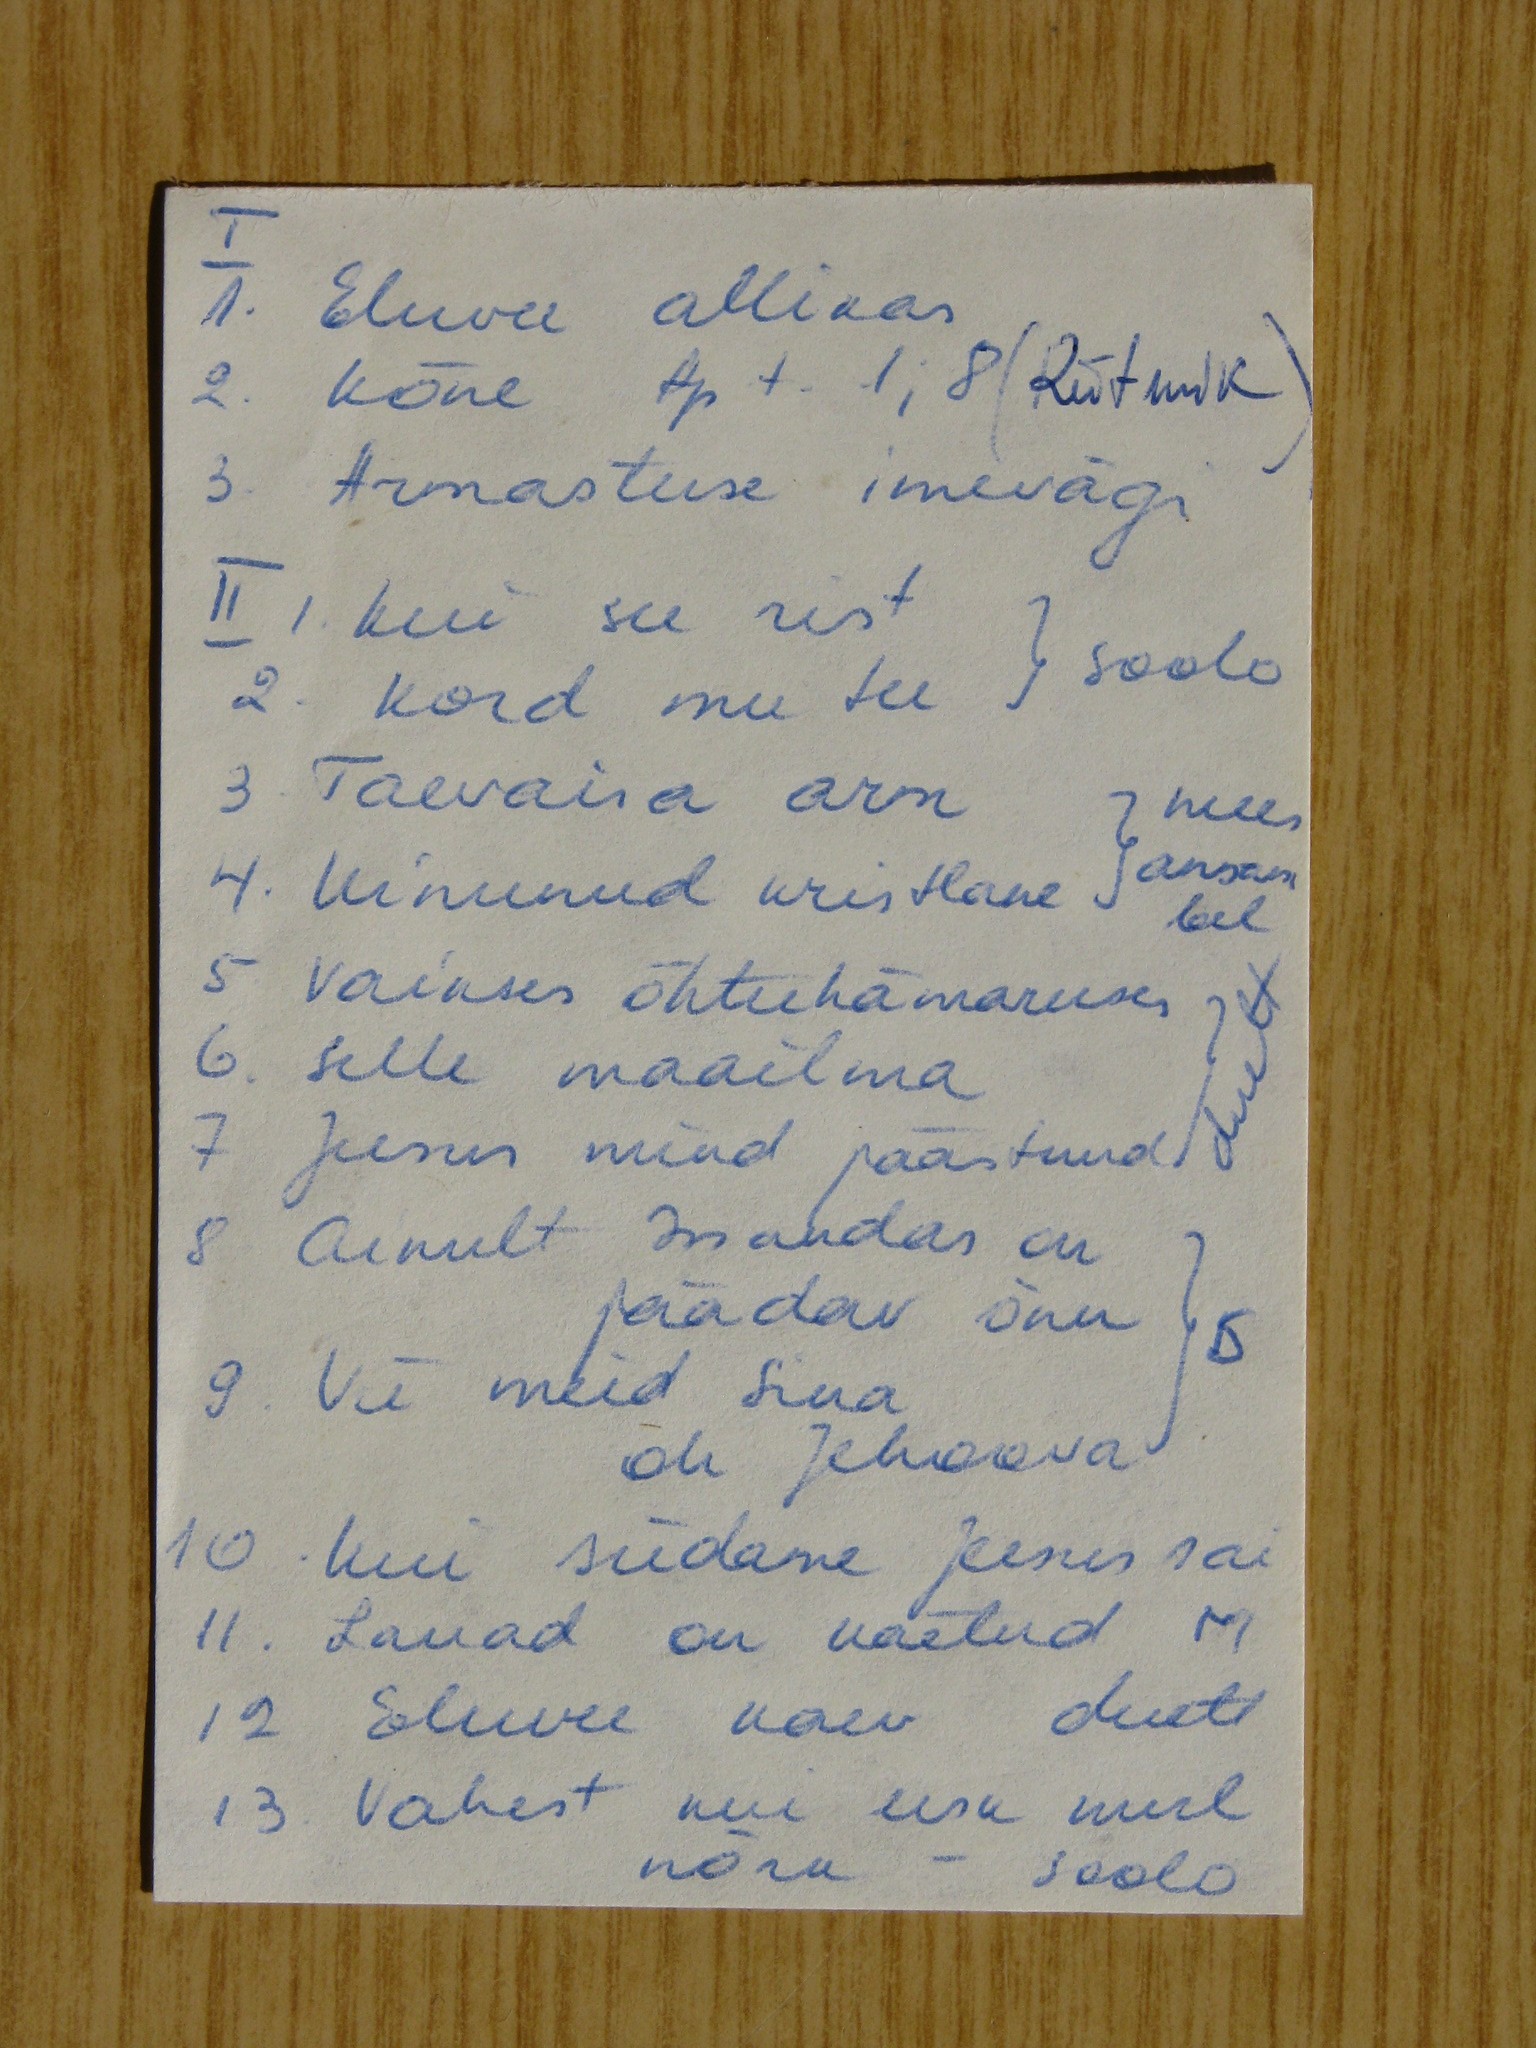 I
1. Eluvee allikas
2. Kõne Ap t. 1; 8 (Rüütmik)
3. Armastuse imevägi
II 1. Kui see rist
2. Kord mu tee } soolo
3. Taevaisa arm
4. Kinunud kristlane } mees ansam bel
5 Vaikses õhtuhämaruses
6. Selle maailma
7 Jeesus mind päästnud } duett
8 Ainult Issandas on
jäädav õnn
9. Vii meid Sina
oh Jehoova } 5
10. Kui südame Jeesus sai
11. Lauad on kaetud M
12 Eluvee kaev duett
13. Vahest kui usk mul
nõrk - soolo